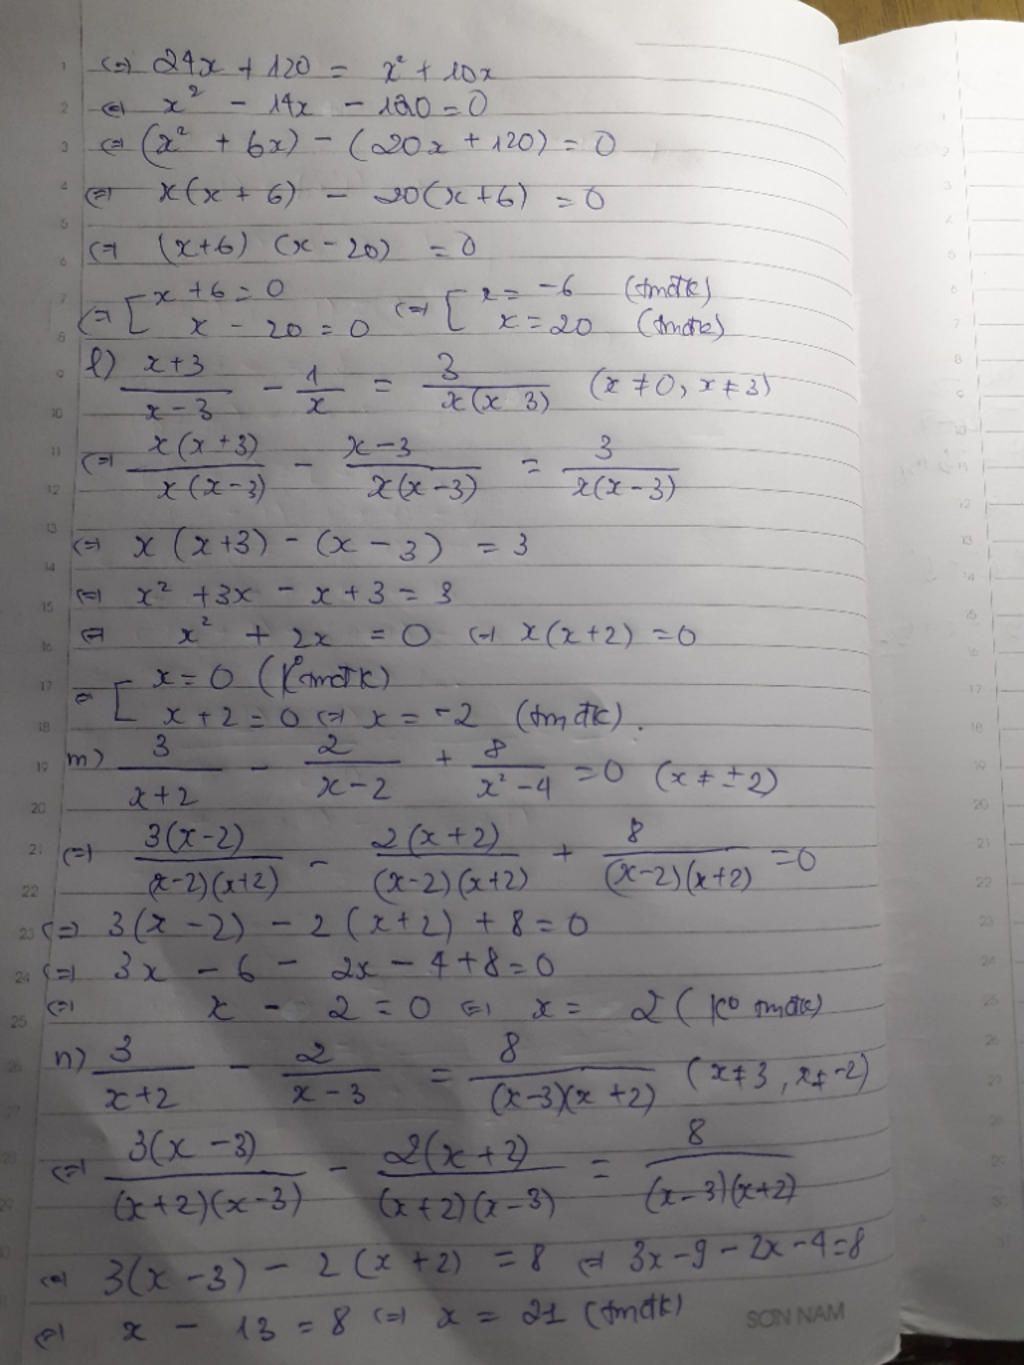 ⇔ 24x + 120 = x² + 10x
⇔ x² - 14x - 120 = 0
⇔ (x² + 6x) - (20x + 120) = 0
⇔ x(x + 6) - 20(x+6) = 0
⇔ (x+6) (x - 20) = 0
⇔ [ x + 6 = 0 ⇔ [ x = -6 (tmđk)
x - 20 = 0 x = 20 (tmđk)
l) (x+3)/(x-3) - 1/x = 3/(x(x 3)) (x ≠ 0, x ≠ 3)
⇔ x(x+3)/(x(x-3)) - (x-3)/(x(x-3)) = 3/(x(x-3))
⇔ x(x+3) - (x - 3) = 3
⇔ x² + 3x - x + 3 = 3
⇔ x² + 2x = 0 ⇔ x(x+2) = 0
⇔ [ x = 0 (K° tmđk)
x + 2 = 0 ⇔ x = -2 (tmđk).
m) 3/(x+2) - 2/(x-2) + 8/(x²-4) = 0 (x ≠ ±2)
⇔ 3(x-2)/((x-2)(x+2)) - 2(x+2)/((x-2)(x+2)) + 8/((x-2)(x+2)) = 0
⇔ 3(x - 2) - 2(x+2) + 8 = 0
⇔ 3x - 6 - 2x - 4 + 8 = 0
⇔ x - 2 = 0 ⇔ x = 2 (K° tmđk)
n) 3/(x+2) - 2/(x-3) = 8/((x-3)(x+2)) (x ≠ 3, x ≠ -2)
⇔ 3(x-3)/((x+2)(x-3)) - 2(x+2)/((x+2)(x-3)) = 8/((x-3)(x+2))
⇔ 3(x-3) - 2(x+2) = 8 ⇔ 3x - 9 - 2x - 4 = 8
⇔ x - 13 = 8 ⇔ x = 21 (tmđk)
SON NAM